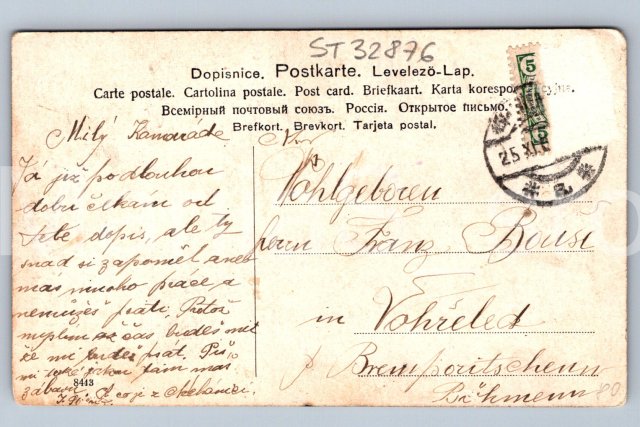 ST 32876
Dopisnice. Postkarte. Levelező-Lap.
Carte postale. Cartolina postale. Post card. Briefkaart. Karta korespo
Всемірный почтовый союзъ. Россія. Открытое письмо.
Brefkort. Brevkort. Tarjeta postal.
5
5
25 XI
Milý Kamaráde
Já již podlouhou
dobu čekám od
Tebe dopis, ale ty
snad si zapoměl aneb
mas mnoho práce a
nemůžeš psáti. Protož
myslím až čas budeš mit
že mi budeš psát. Piš
mi také jakou tam mas
zábavu. A co je z
8413
Wohlgeboren
Herrn Franz Bouše
in Vohřeled
p
Böhmen
80